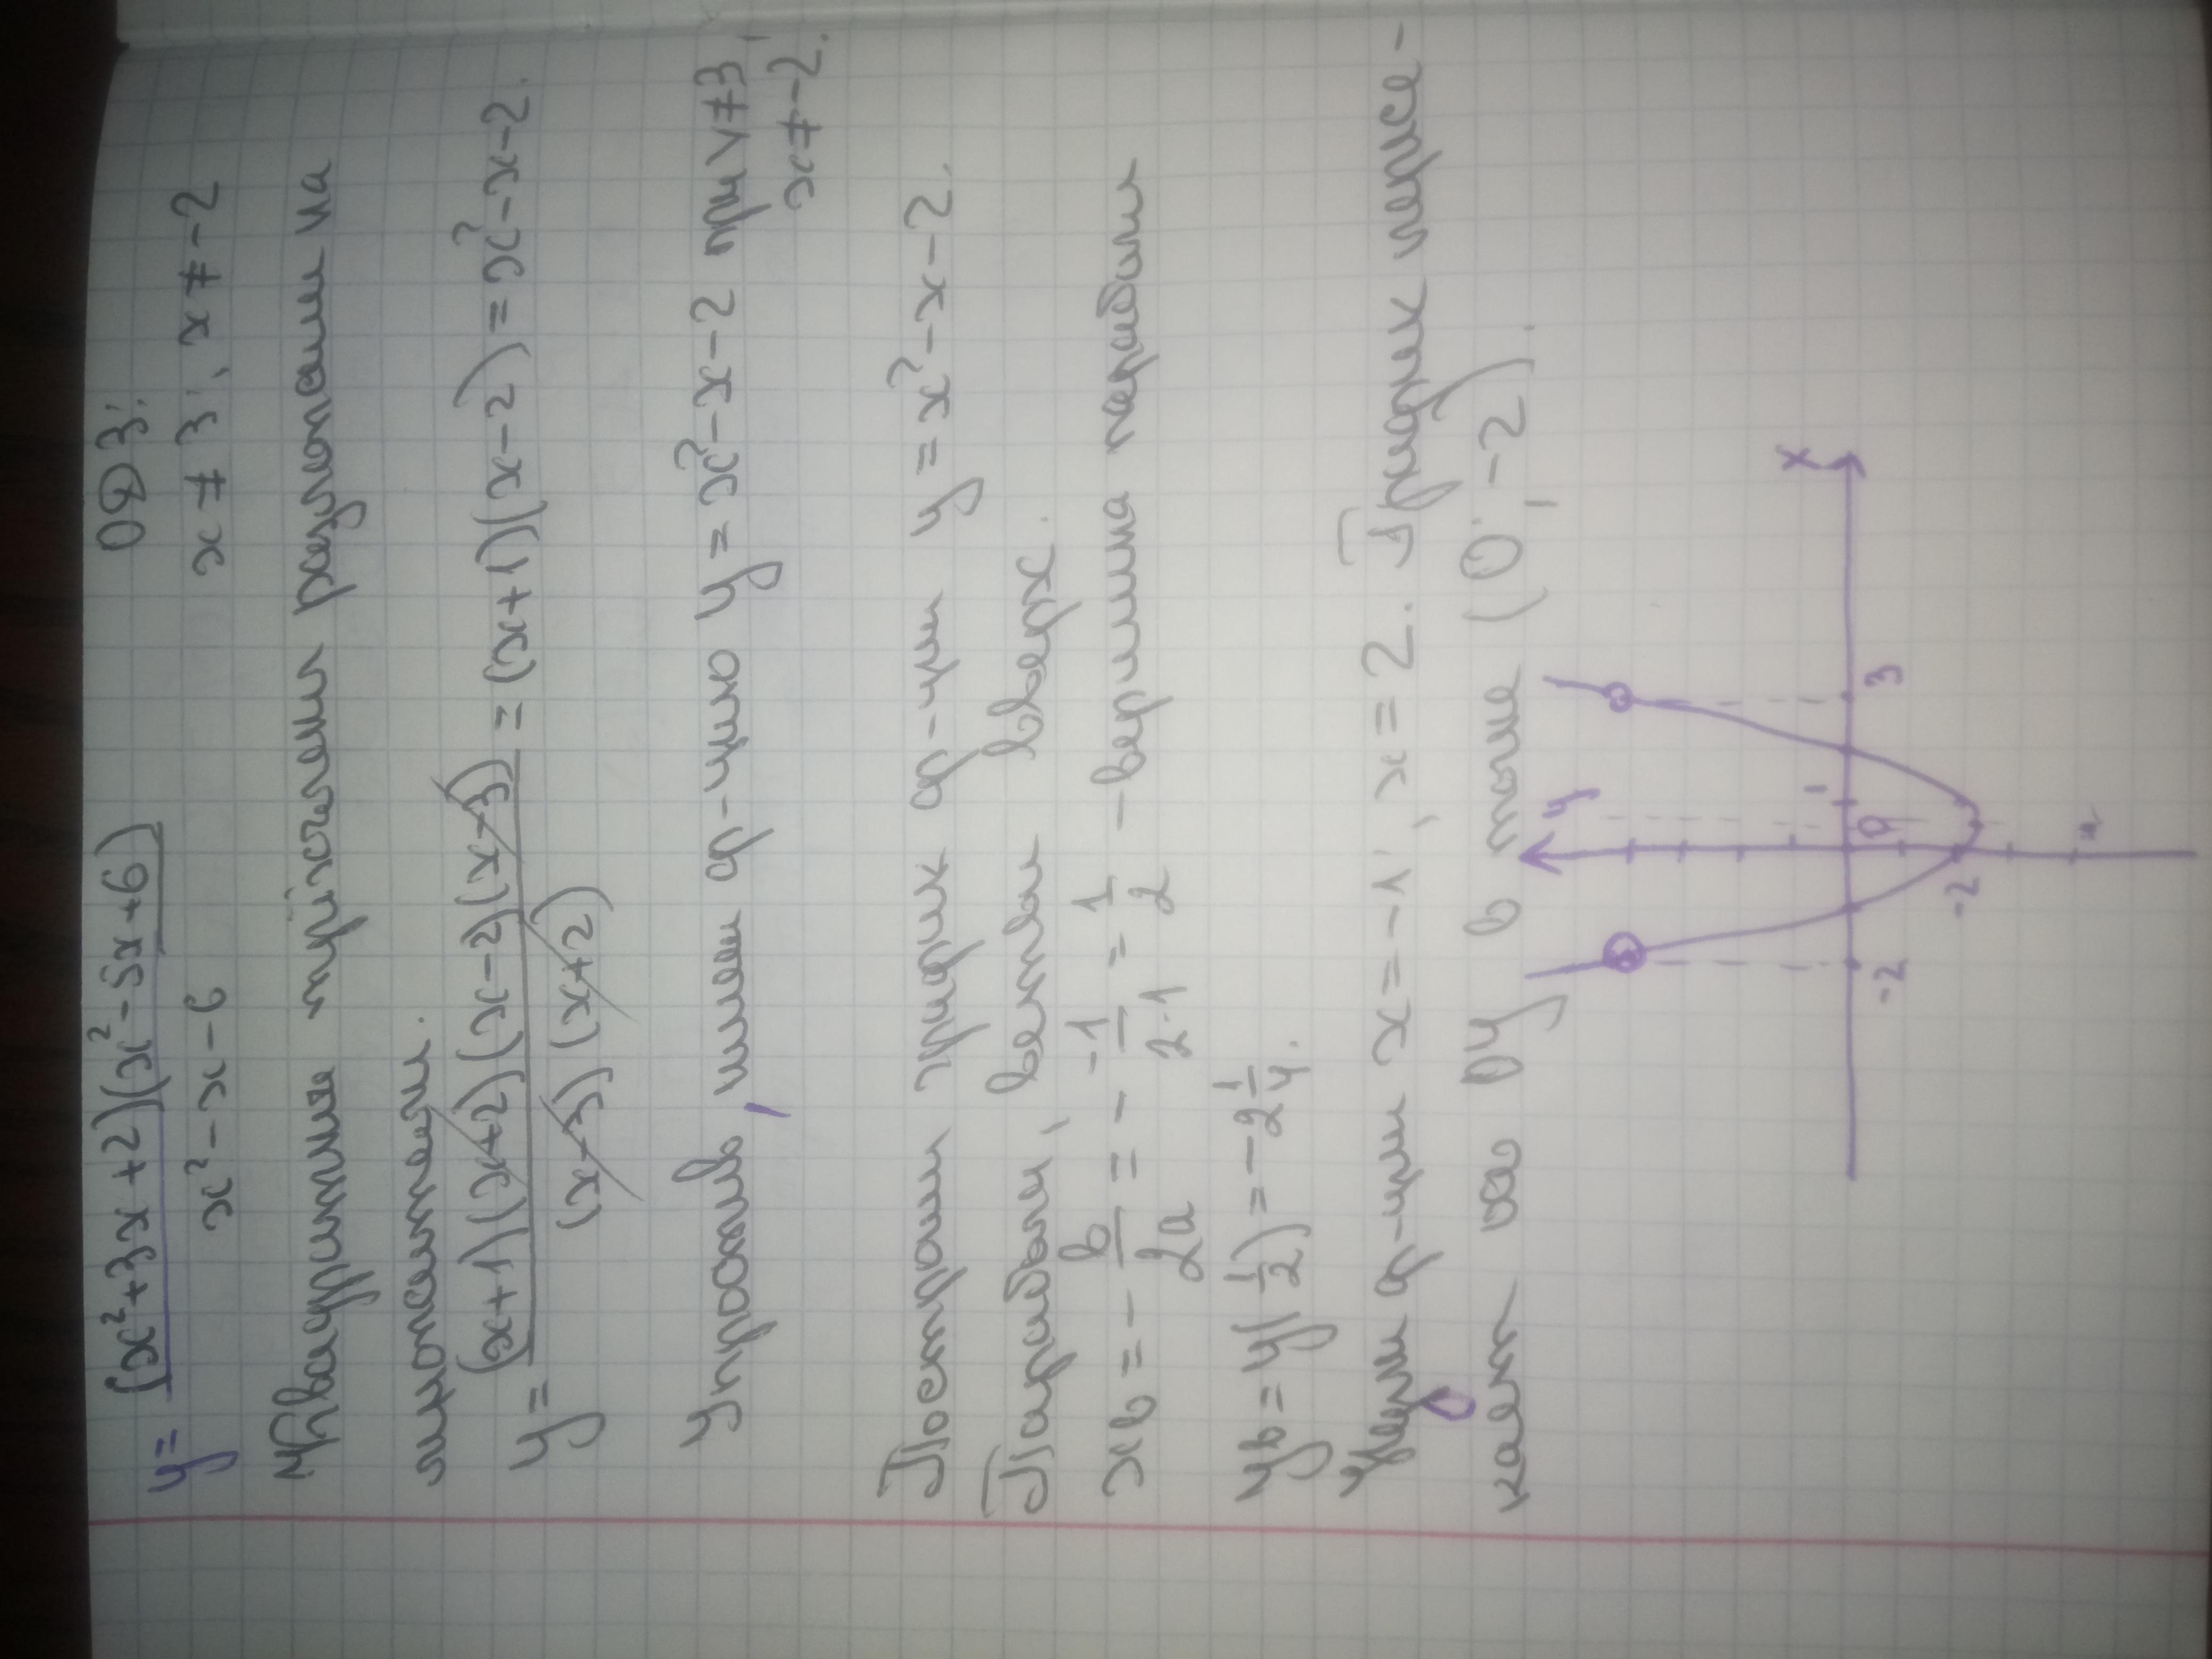 y = (x²+3x+2)(x²-5x+6) / x²-x-6     ОДЗ:
x ≠ 3; x ≠ -2
Квадратные трёхчлены разложим на
множители.
y = (x+1)(x+2)(x-2)(x-3) / (x-3)(x+2) = (x+1)(x-2) = x²-x-2.
Упростив, имеем ф-цию y = x²-x-2 при x≠3;
x≠-2.
Построим график ф-ции y = x²-x-2.
Парабола, ветви вверх.
xв = - b/2a = - -1/2·1 = 1/2 - вершина параболы
yв = y(1/2) = -2 1/4.
Нули ф-ции x = -1; x = 2. График пересе-
кает ось OY в точке (0; -2).
y
x
-2 0 1 3
-2